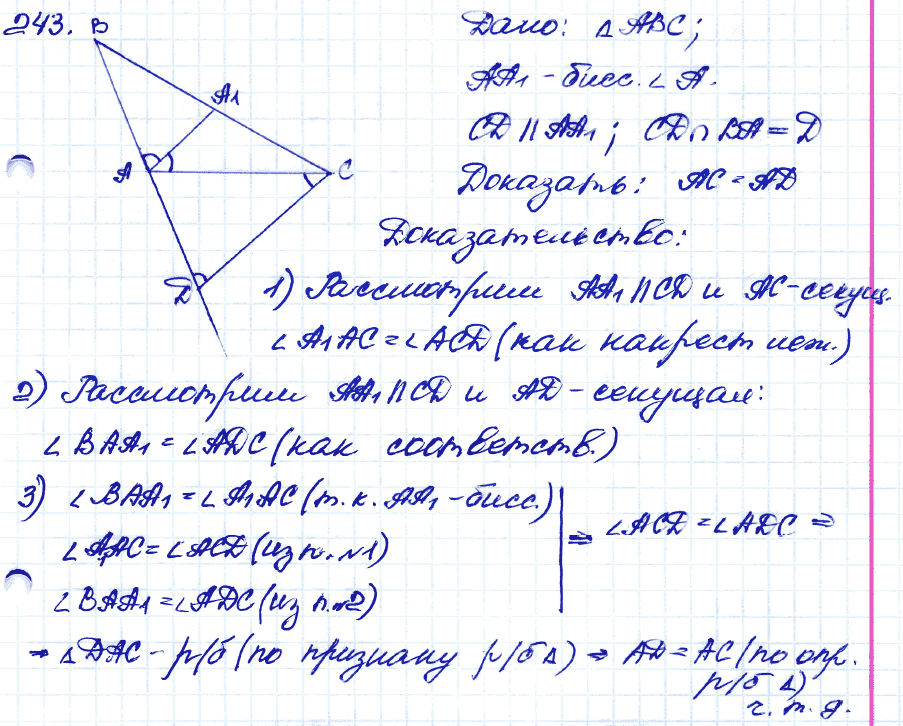 243.
B
A1
A
C
D
Дано: △ABC;
AA1 - бисс. ∠A.
CD || AA1; CD ∩ BA = D
Доказать: AC = AD
Доказательство:
1) Рассмотрим AA1 || CD и AC - секущ.
∠A1AC = ∠ACD (как накрест леж.)
2) Рассмотрим AA1 || CD и AD - секущая:
∠BAA1 = ∠ADC (как соответств.)
3) ∠BAA1 = ∠A1AC (т.к. AA1 - бисс.)
∠A1AC = ∠ACD (из п. №1)
∠BAA1 = ∠ADC (из п. №2)
⇒ ∠ACD = ∠ADC ⇒
⇒ △DAC - р/б (по признаку р/б △) ⇒ AD = AC (по опр.
р/б △)
ч. т. д.